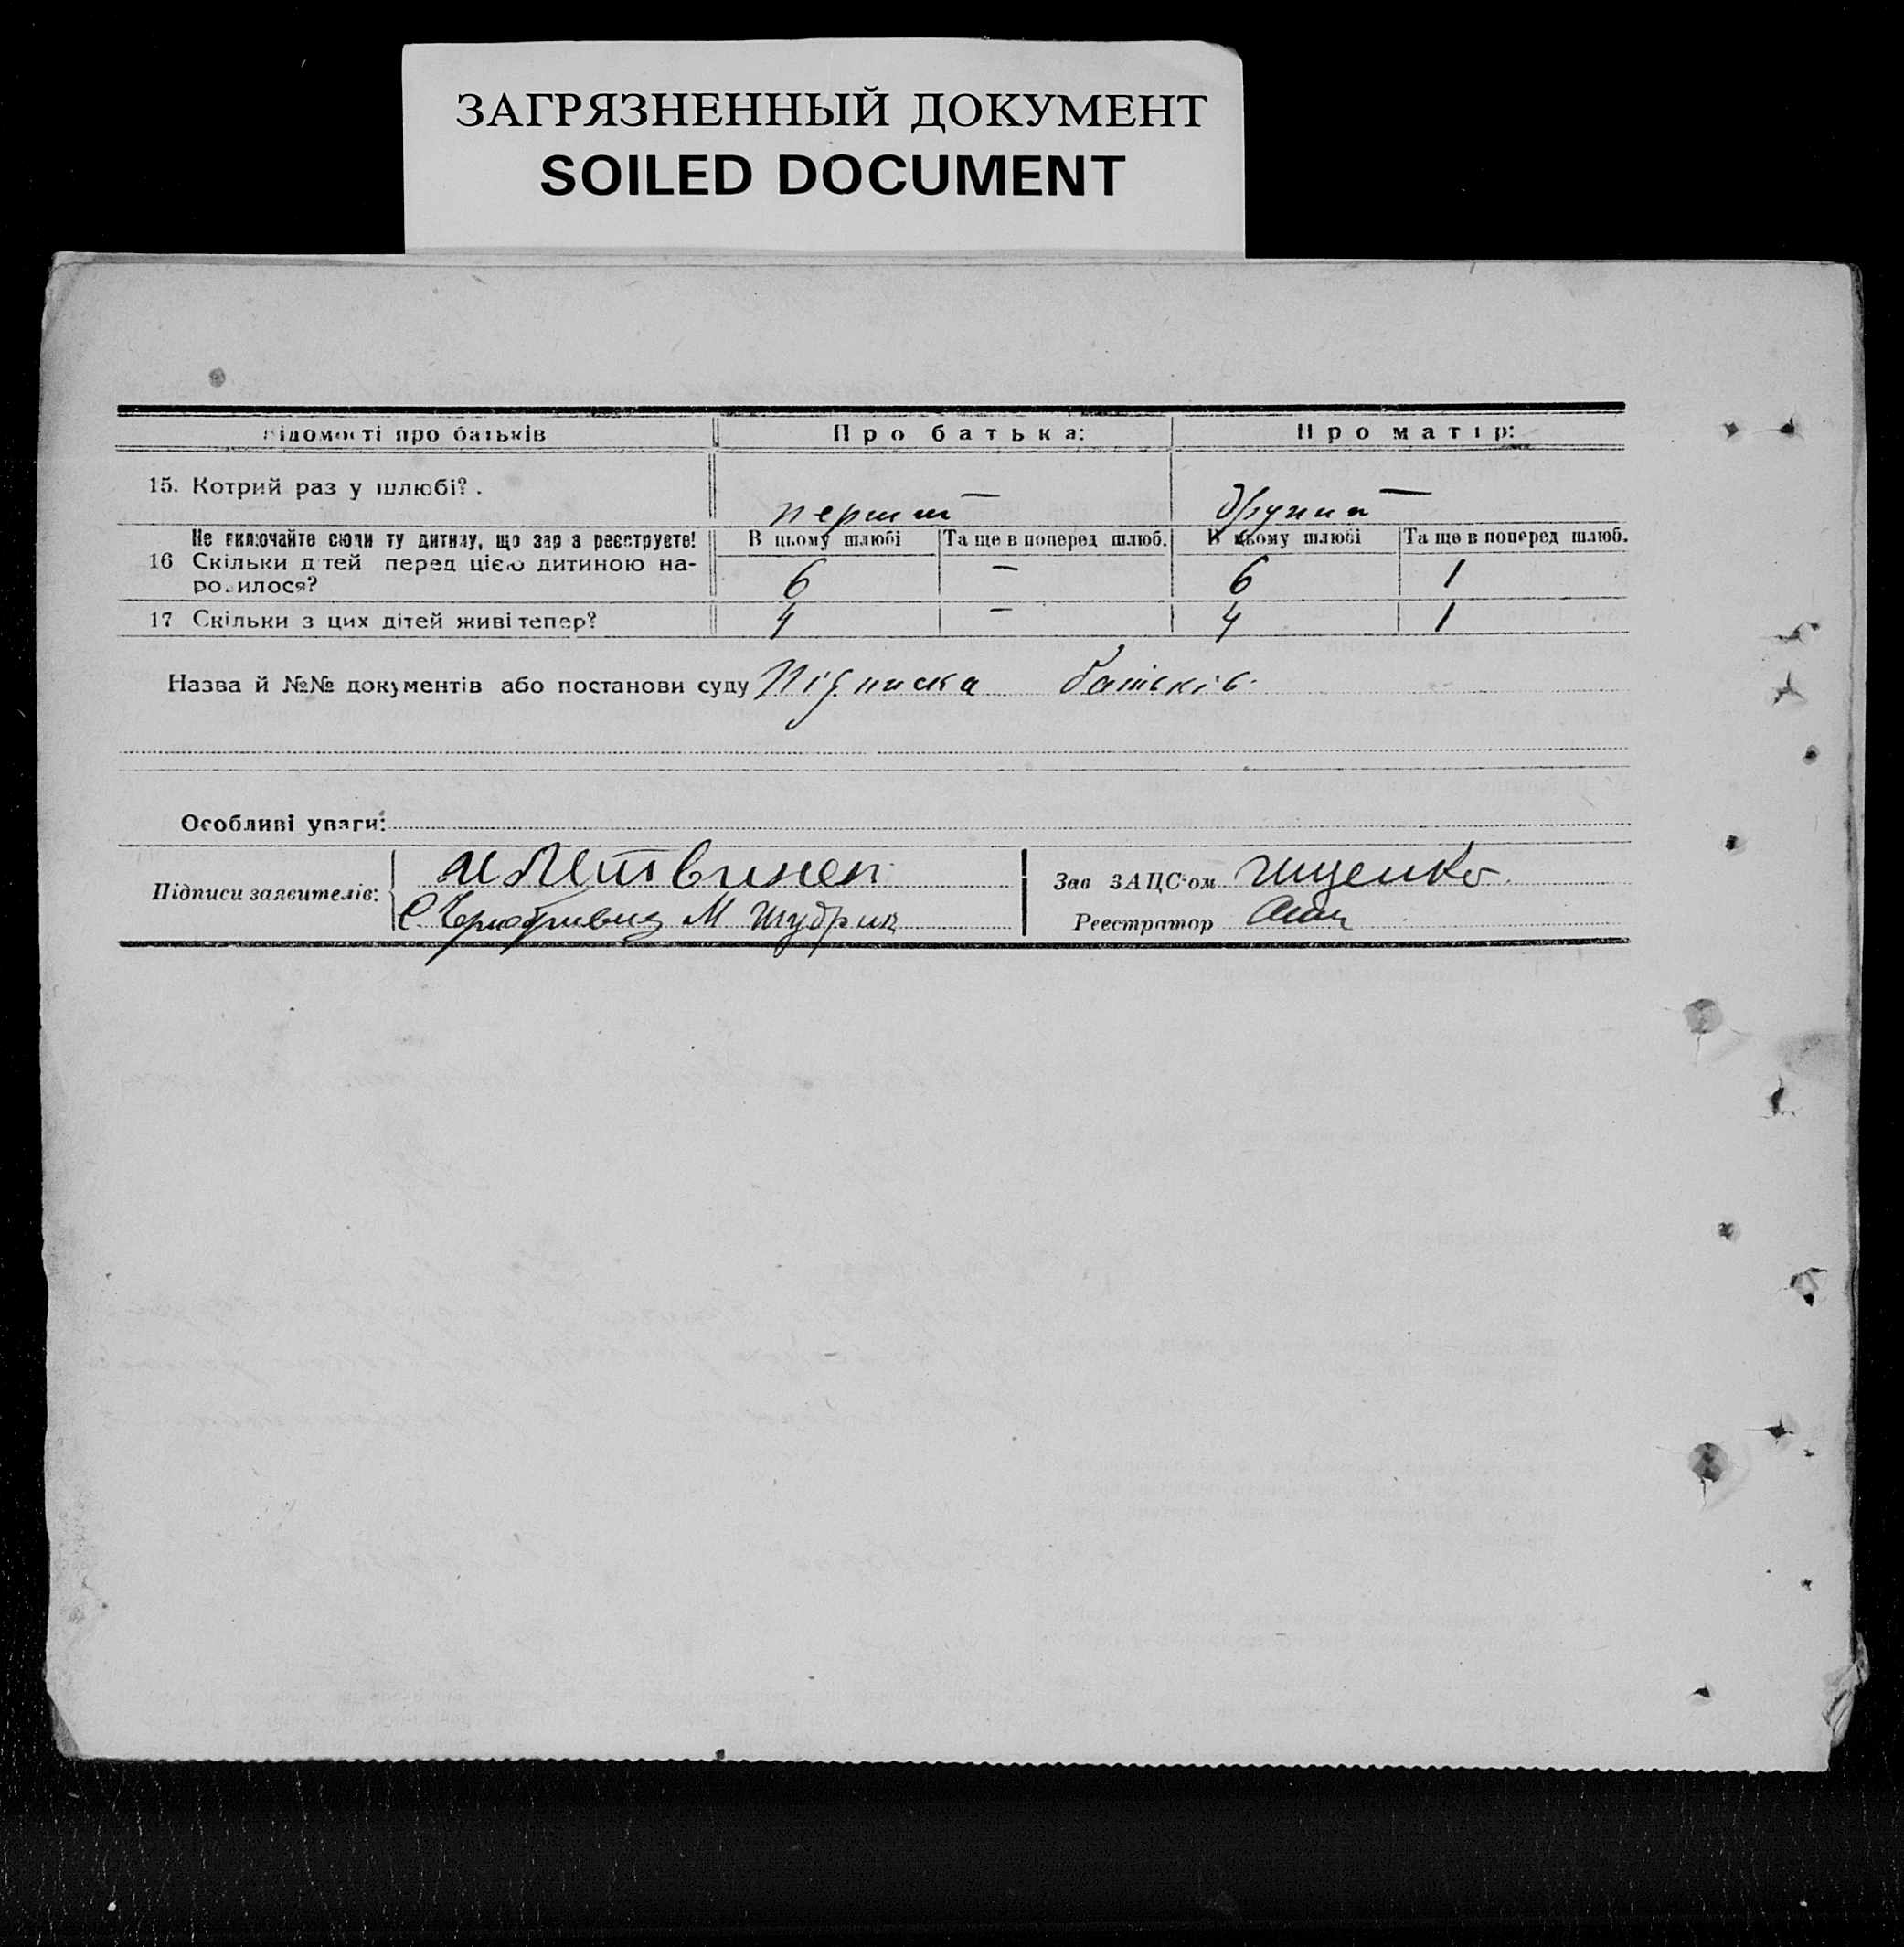 ЗАГРЯЗНЕННЫЙ ДОКУМЕНТ
SOILED DOCUMENT
Відомості про батьків Про батька: Про матір:
15. Котрий раз у шлюбі? . перший другий
Не включайте сюди ту дитину, що зараз реєструєте! В цьому шлюбі Та ще в поперед шлюб. В цьому шлюбі Та ще в поперед шлюб.
16 Скільки дітей перед цією дитиною на-
родилося? 6 — 6 1
17 Скільки з цих дітей живі тепер? 4 — 4 1
Назва й №№ документів або постанови суду Підписка батьків.
Особливі уваги:
Підписи заявителів: И Литвинен Зав ЗАЦС'ом Іщенко
С. Чернобривец М Шубрик Реєстратор